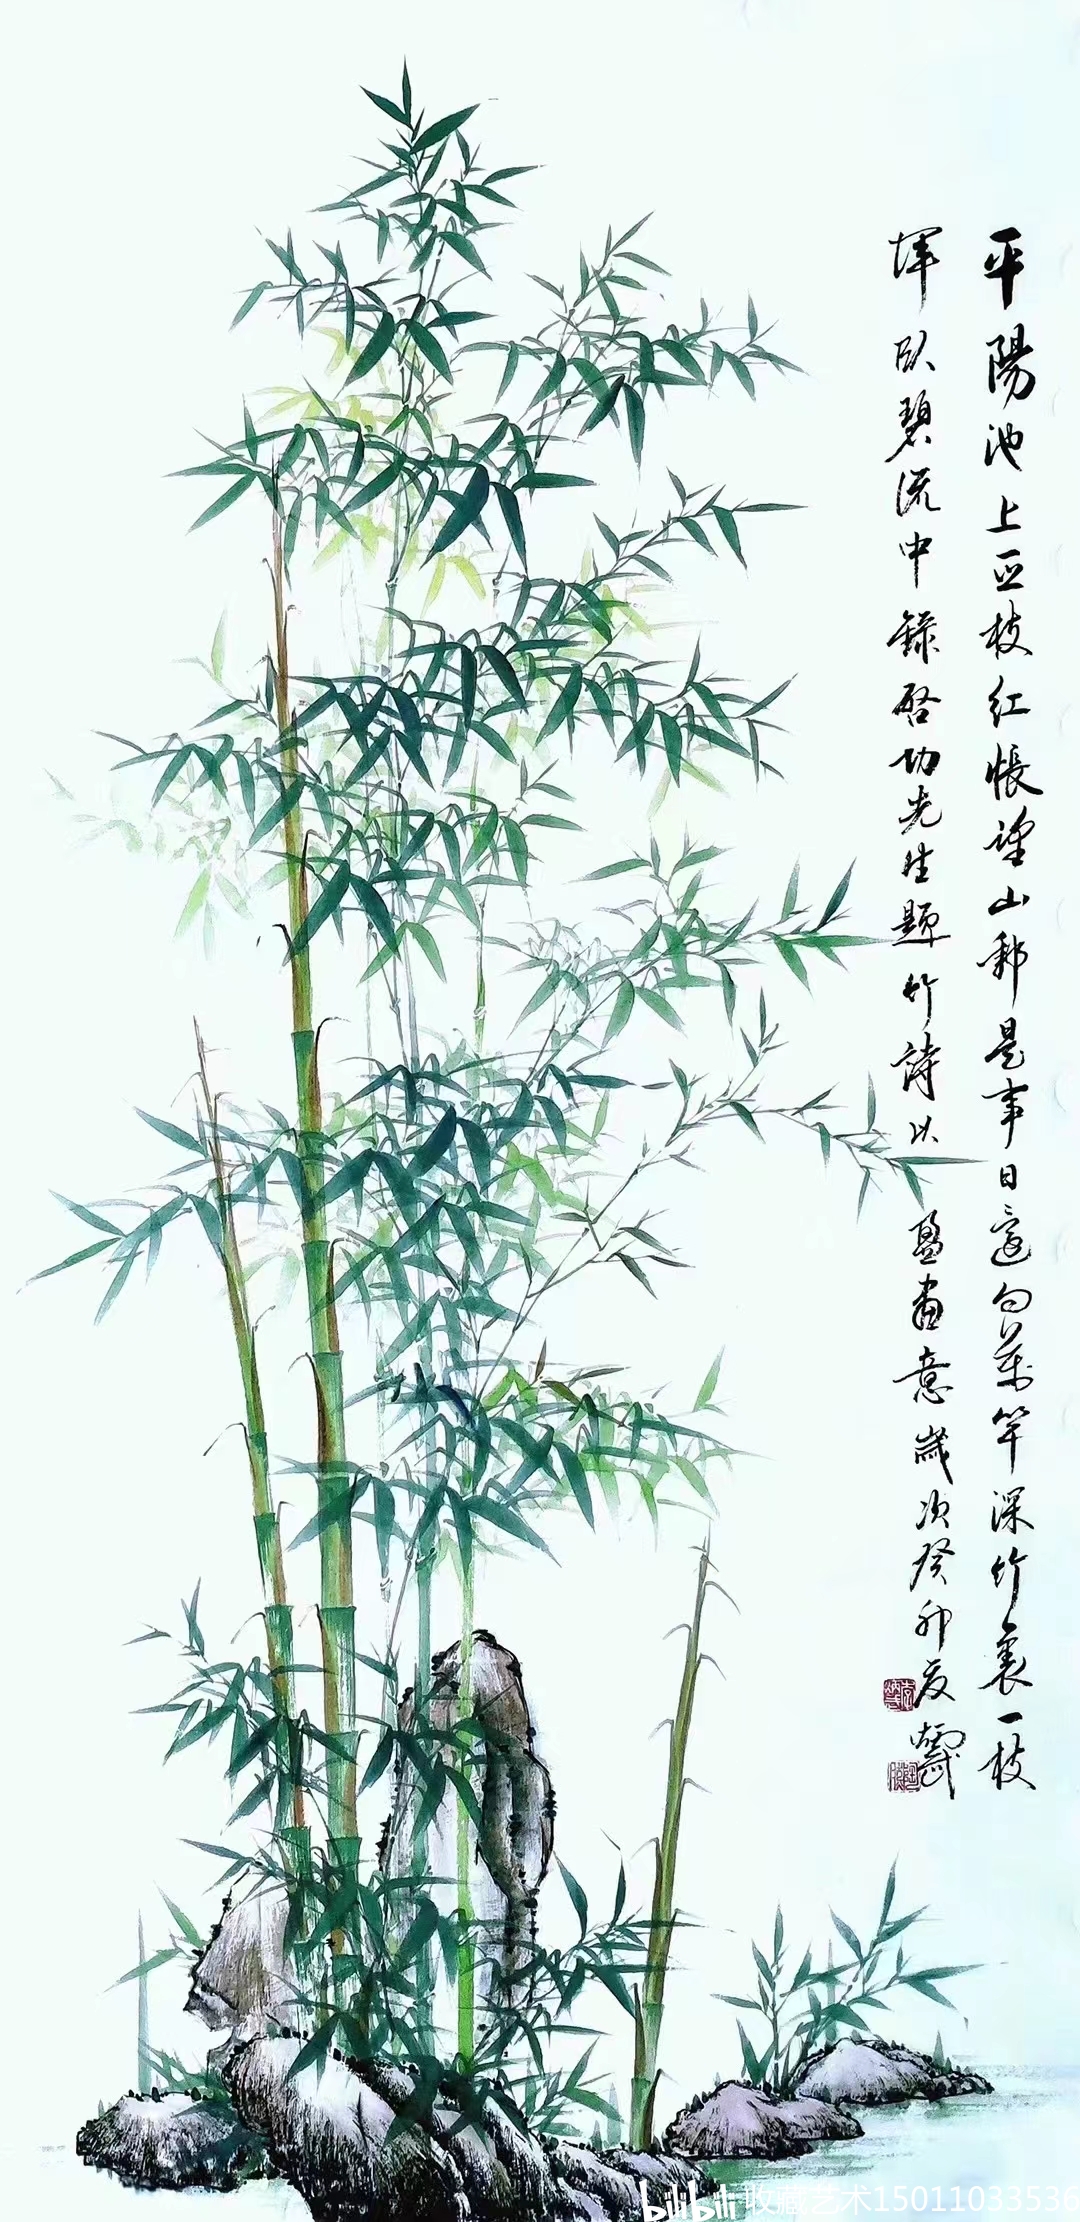 平陽池上亞枝紅悵望山郵是事同還向萬竿深竹裏一枝
渾臥碧流中錄啓功先生題竹詩以盈畫意歲次癸卯夏
bilibili 收藏艺术15011033536